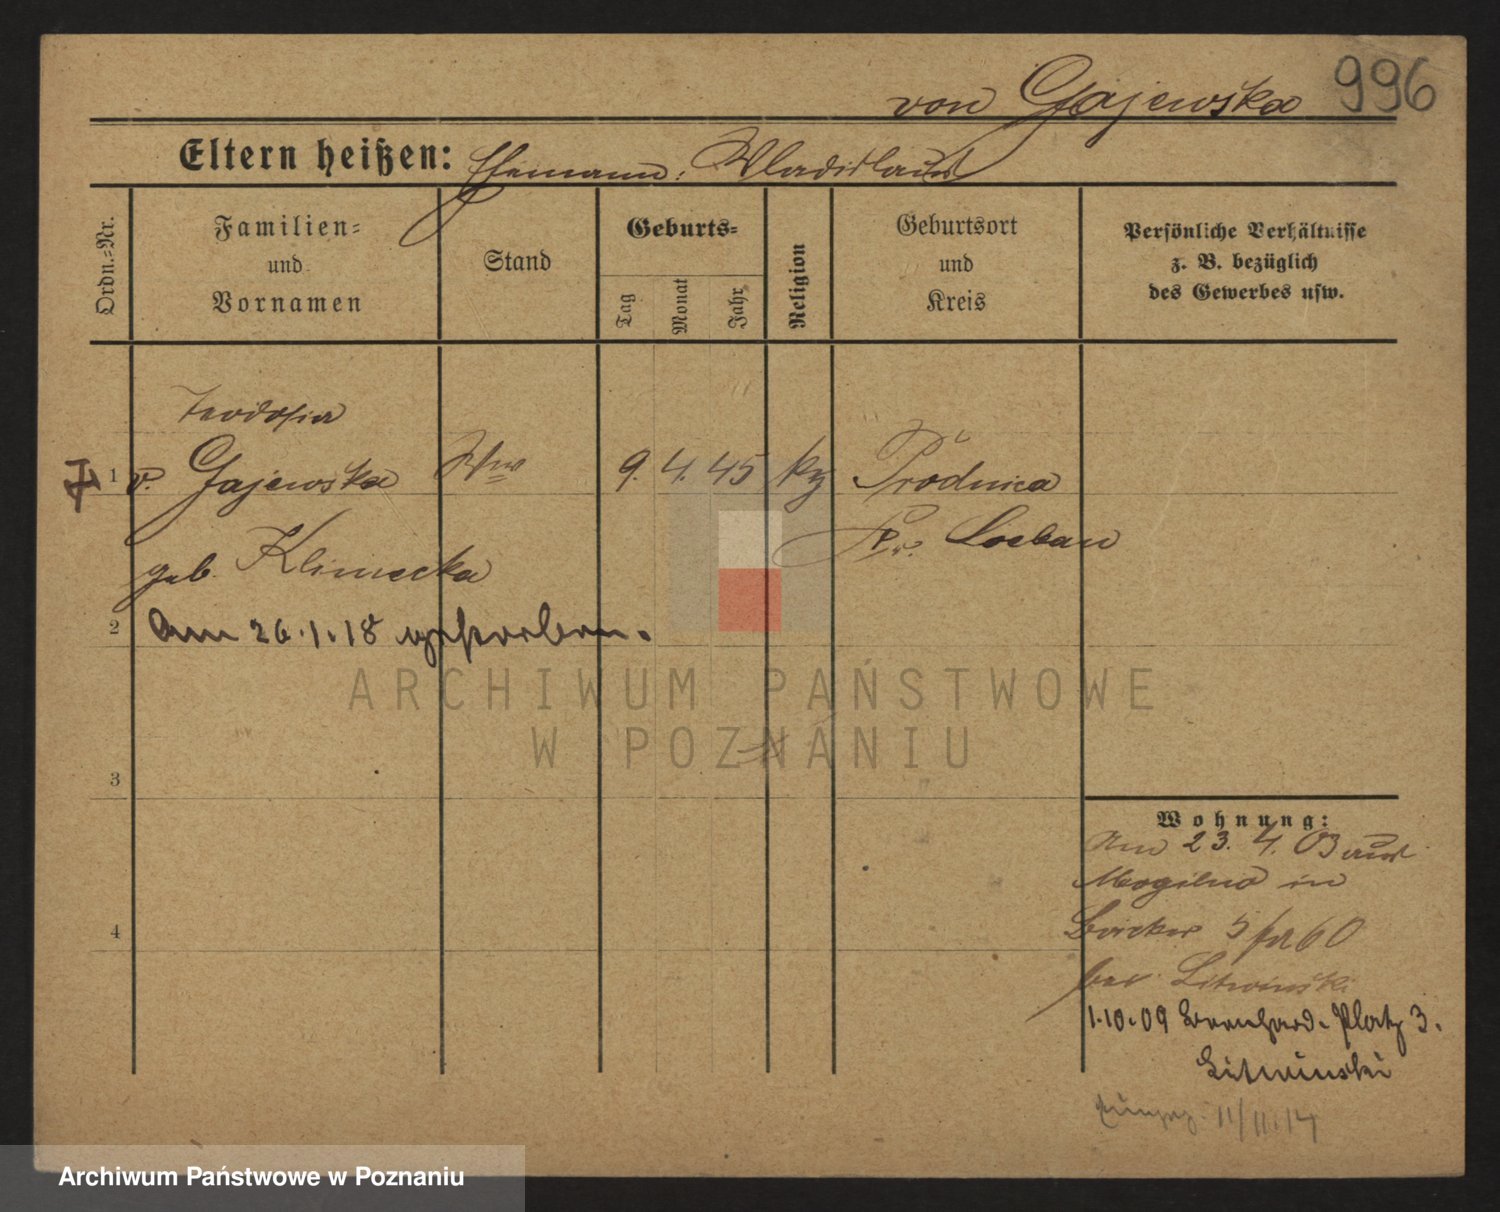 von Gajewska 996
Eltern heißen: Ehemann: Wladislaus
Ordn.-Nr.
Familien-
und
Vornamen
Stand
Geburts-
Tag
Monat
Jahr
Religion
Geburtsort
und
Kreis
Persönliche Verhältnisse
z. B. bezüglich
des Gewerbes usw.
Teodosia
1 v. Gajewska Ww 9. 4. 45 Prodnica
geb. Klimecka Loebau
2 Am 26.1.18 gestorben.
ARCHIWUM PAŃSTWOWE
W POZNANIU
3
4
Wohnung:
Am 23. 4. 03 aus
Mogilno in
60
bei Litwinski
1.10.09 Bernhard. Platz 3.
Litwinski
11/11.14
Archiwum Państwowe w Poznaniu